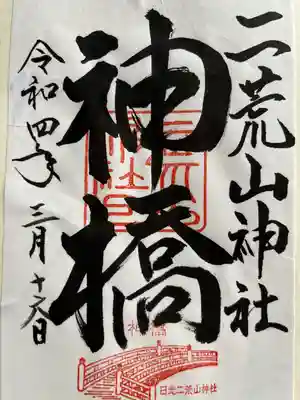 二荒山神社
神橋
令和四年三月十六日
日光二荒山神社